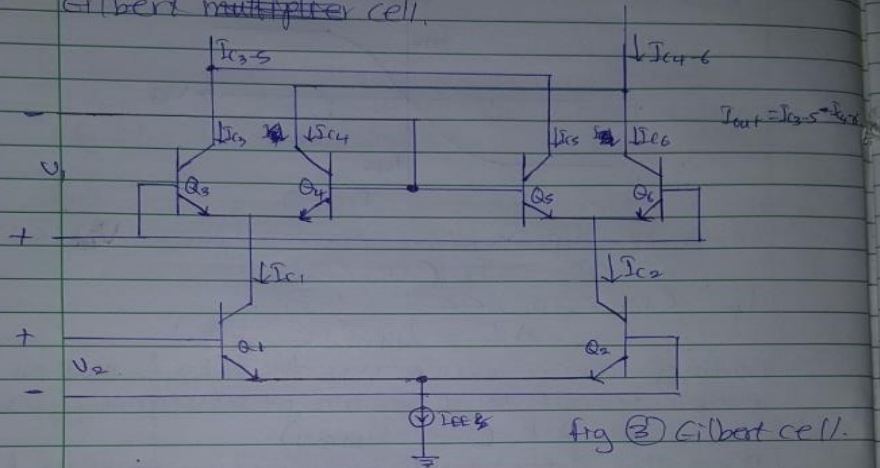 Gilbert multiplier cell.
Ic3-5
↓Ic4-6
-
↓Ic3
↓Ic4
↓Ic5
↓Ic6
Iout = Ic3-5 - Ic4-6
V1
Q3
Q4
Q5
Q6
+
↓Ic1
↓Ic2
+
Q1
Q2
V2
-
IEE
fig ③ Gilbert cell.